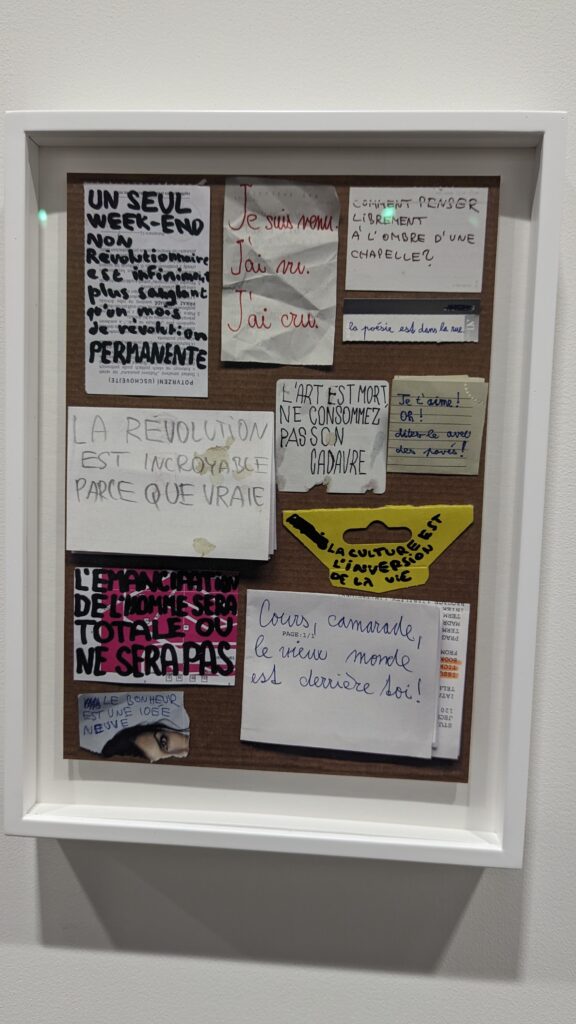 UN SEUL
WEEK-END
NON
Révolutionnaire
est infiniment
plus sanglant
qu'un mois
de révolution
PERMANENTE
POTVRZENÍ (USCHOVEJTE)
Je suis venu.
J'ai vu.
J'ai cru.
COMMENT PENSER
LIBREMENT
À L'OMBRE D'UNE
CHAPELLE?
la poésie est dans la rue
L'ART EST MORT
NE CONSOMMEZ
PAS SON
CADAVRE
Je t'aime!
Oh!
dites-le avec
des pavés!
LA REVOLUTION
EST INCROYABLE
PARCE QUE VRAIE
LA CULTURE EST
L'INVERSION
DE LA VIE
L'EMANCIPATION
DE L'HOMME SERA
TOTALE OU
NE SERA PAS
Cours, camarade,
PAGE:1/1
le vieux monde
est derrière toi!
LE BONHEUR
EST UNE IDEE
NEUVE